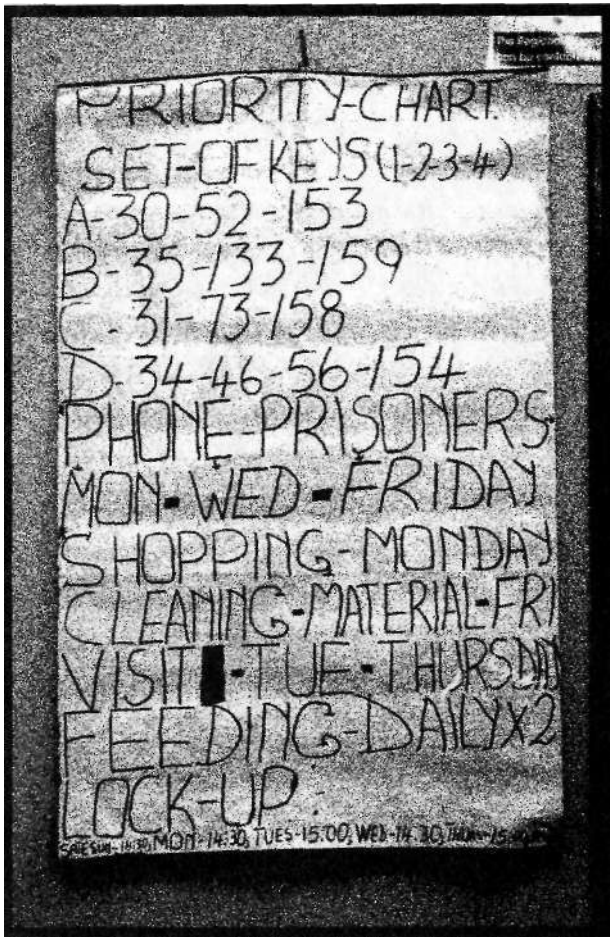 The Regional
PRIORITY-CHART.
SET-OF KEYS (1-2-3-4)
A-30-52-153
B-35-133-159
C-31-73-158
D-34-46-56-154
PHONE-PRISONERS
MON-WED-FRIDAY
SHOPPING-MONDAY
CLEANING-MATERIAL-FRI
VISIT-TUE-THURSDAY
FEEDING-DAILYX2
LOCK-UP
SUN-14:30, MON-14:30, TUES-15:00, WED-14:30,